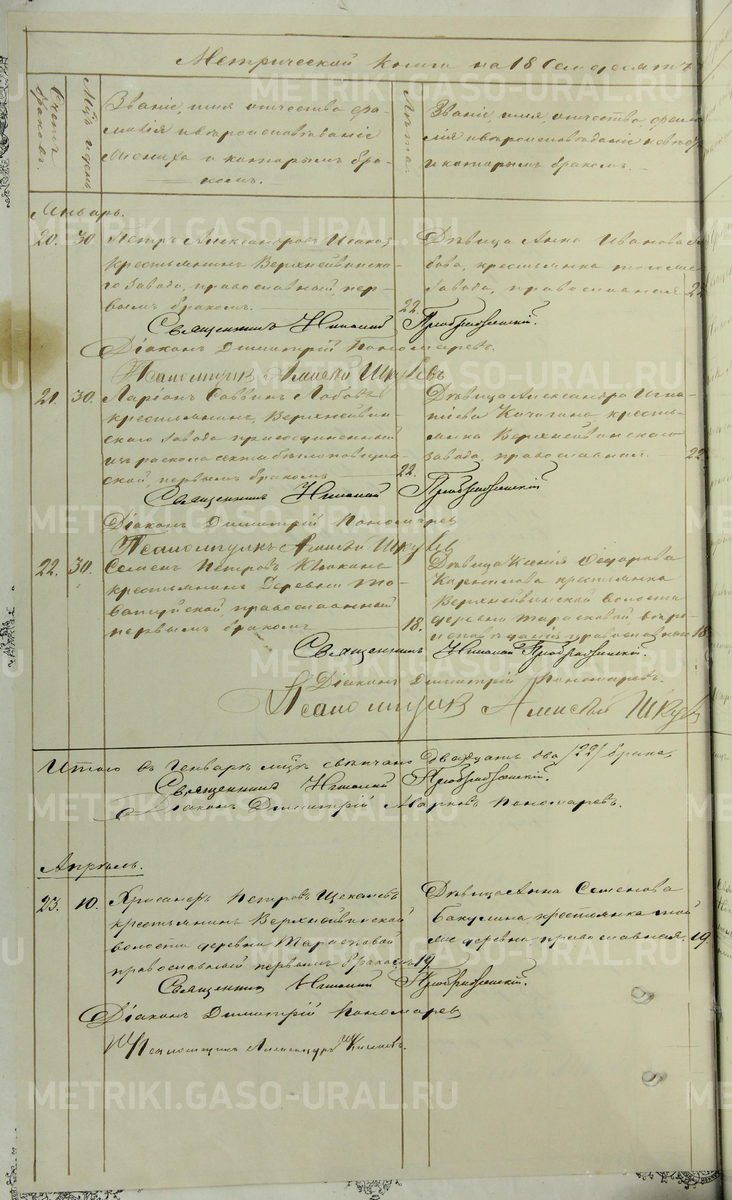 Метрической книги на 18
Счетъ браковъ.
Мцъ и день
Званіе, имя, отчество, фа-
милія и вѣроисповѣданіе
жениха и которымъ бра-
комъ.
Лѣта.
Званіе, имя, отчество, фами-
лія и вѣроисповѣданіе невѣс
и которымъ бракомъ.
Январь.
20. 30 Петръ Александровъ
крестьянинъ Верхнейвинска-
го Завода, православный, пер-
вымъ бракомъ. 22.
Дѣвица Анна Иванова
крестьянка тогоже
Завода, православная 22
Священникъ Николай Преображенскій.
Діаконъ Димитрій Пономаревъ.
Псаломщикъ Алексѣй
21. 30. Ларіонъ Саввинъ
крестьянинъ, Верхнейвин-
скаго Завода присоединенный
изъ раскола секты бѣлопоповщин-
ской, первымъ бракомъ 22.
Дѣвица Александра Игна-
тіева крестья-
нка Верхнейвинскаго
Завода, православная. 22
Священникъ Николай Преображенскій
Діаконъ Димитрій Пономаревъ
Псаломщикъ Алексѣй
22. 30. Семенъ Петровъ
крестьянинъ Деревни
православный
первымъ бракомъ 18.
Дѣвица Ксенія Федорова
крестьянка
Верхнейвинской волости
деревни Тарасковой
православной 18
Священникъ Николай Преображенскій.
Діаконъ Димитрій Пономаревъ.
Псаломщикъ Алексѣй
Итого въ Генварѣ мцѣ свѣнчано двадцать два /22/ брака.
Священникъ Николай Преображенскій.
Діаконъ Димитрій Марковъ Пономаревъ.
Апрѣль.
23. 10. Хрисанфъ Петровъ
крестьянинъ Верхнейвинской
волости деревни Тарасковой
православный первымъ бракомъ 19
Дѣвица Анна Семенова
Бакулина крестьянка той
же деревни православная. 19
Священникъ Николай Преображенскій.
Діаконъ Димитрій Пономаревъ
Псаломщикъ Александръ
METRIKI.GASO-URAL.RU